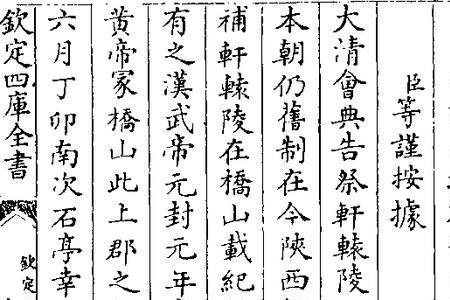 臣等謹按據
大清會典告祭軒轅陵
本朝仍舊制在今陝西
補軒轅陵在橋山載紀
有之漢武帝元封元年
黄帝冢橋山此上郡之
六月丁卯南次石亭幸
欽定四庫全書
欽定